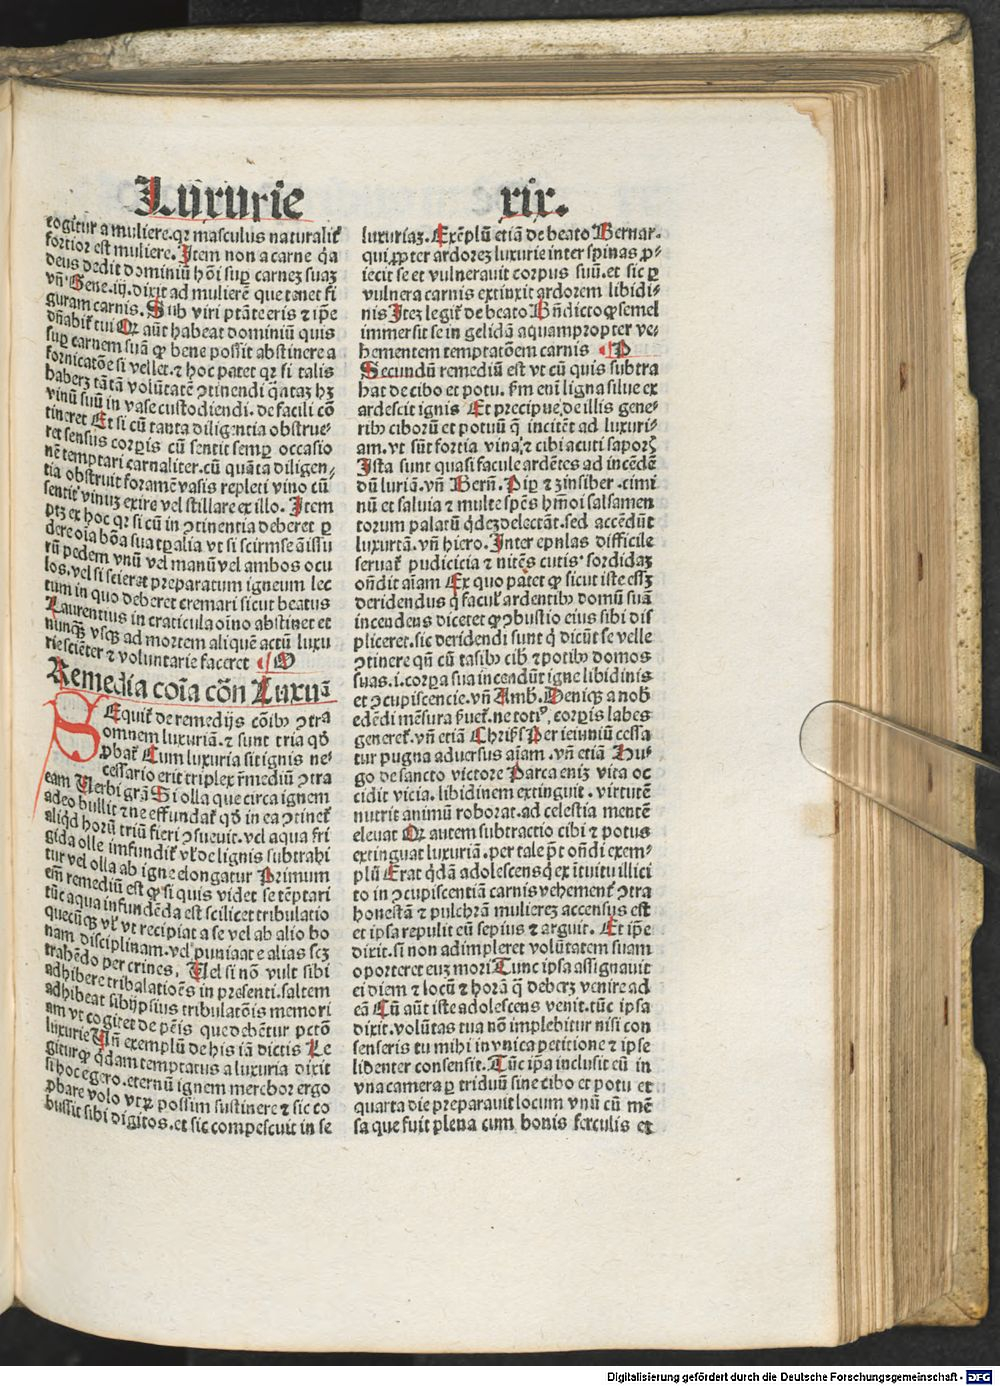 Luxurie
xix.
cogitur a muliere. qꝛ masculus naturalit᷑
fortior est muliere. Item non a carne q̄a
deus dedit dominiū hōi suꝑ carneꝫ suaꝫ
vn̄ Gene. iij. dixit ad mulierē que tenet fi
guram carnis. Sub viri ptāte eris ⁊ ip̄e
dn̄abit᷑ tui Qꝛ aūt habeat dominiū quis
suꝑ carnem suā ꝙ bene possit abstinere a
fornicatōe si vellet. ⁊ hoc patet qꝛ si talis
haberꝫ tātā volūtatē ꝯtinendi q̄ntaꝫ hꝫ
vinū suū in vase custodiendi. de facili cō
tineret Et si cū tanta diligentia obstrue⸗
ret sensus corꝑis cū sentit semꝑ occasio
nē temptari carnaliter. cū quāta diligen⸗
tia obstruit foramē vasis repleti vino cū
sentit vinuꝫ exire vel stillare ex illo. Item
ptꝫ ex hoc qꝛ si cū in ꝯtinentia deberet ꝑ
dere oīa bōa sua tꝑalia vt si scirm se āissu
rū pedem vnū vel manū vel ambos ocu
los. vel si scieret preparatum igneum lec
tum in quo deberet cremari sicut beatus
Laurentius in craticula oīno abstinet et
nunqꝫ vsqꝫ ad mortem aliquē actū luxu
rie sciēter ⁊ voluntarie faceret ¶ O
Remedia coīa cōn Luxuā
SEquit᷑ de remedijs cōibꝰ ꝯtra
omnem luxuriā. ⁊ sunt tria qd̄
ꝓbat᷑ Cum luxuria sit ignis ne⸗
cessario erit triplex r̄mediū ꝯtra
eam Verbi grā Si olla que circa ignem
adeo bullit ⁊ ne effundat᷑ qd̄ in ea ꝯtinet᷑
aliqd horū triū fieri ꝯsueuit. vel aqua fri
gida olle imfundit᷑ vl᷑ de lignis subtrahi
tur vel olla ab igne elongatur Primum
em̄ remediū est ꝙ si quis videt se tēptari
tūc aqua infundēda est scilicet tribulatio
quecūqꝫ vl᷑ vt recipiat a se vel ab alio bo
nam disciplinam. vel puniaat e alias scꝫ
trahēdo per crines, Vel si nō vult sibi
adhibere tribalatioēs in presenti. saltem
adhibeat sibijpsius tribulatōis memori
am vt cogitet de pēis que debētur pctō
luxurie Vn̄ exemplū de his iā dictis Le
giturꝙ q̄dam temptatus a luxuria dixit
si hoc egero. eternū ignem merebor ergo
ꝓbare volo vtꝝ possim sustinere ⁊ sic co
bussit sibi digitos. et sic compescuit in se
luxuriaꝫ. Exēplū etiā de beato Bernar.
qui ꝓpter ardoreꝫ luxurie inter spinas ꝓ⸗
iecit se et vulnerauit corpus suū. et sic ꝑ
vulnera carnis extinxit ardorem libidi⸗
nis Iteꝫ legit᷑ de beato Bn̄dicto ꝙ semel
immersit se in gelidā aquam propter ve⸗
hementem temptatōem carnis ¶ P
Secundū remediū est vt cū quis subtra
hat de cibo et potu. ẜm enī ligna silue ex
ardescit ignis Et precipue de illis gene⸗
ribꝰ ciborū et potuū q̄ incitēt ad luxuri⸗
am. vt sūt fortia vina, ⁊ cibi acuti saporꝭ
Ista sunt quasi facule ardētes ad incēdē
dū luriam. vn̄ Bern̄. Pipꝑ ⁊ zinsiber. cimi
nū et saluia ⁊ multe spēs hm̄oi salsamen
torum palatū q̄deꝫ delectāt. sed accēdūt
luxurtā. vn̄ hiero. Inter epnlas difficile
seruat᷑ pudicicia ⁊ nitēs cutis sordidaꝫ
on̄dit aīam Ex quo patet ꝙ sicut iste essꝫ
deridendus q̄ facul᷑ ardentibꝰ domū suā
incendens diceret ꝙ ꝯbustio eius sibi dis
pliceret. sic deridendi sunt q̄ dicūt se velle
ꝯtinere qn̄ cū tasibꝰ cib ⁊ potibꝰ domos
suas. i. corꝑa sua incendūt igne libidinis
et ꝯcupiscencie. vn̄ Amb. Deniqꝫ a nob
edēdi mēsura ẜuet᷑. ne totiꝰ, corꝑis labes
generet᷑. vn̄ etiā Chriſ᷑s Per ieiuniū cessa
tur pugna aduersus aīam. vn̄ etiā Hu⸗
go de sancto victore Parca eniꝫ vita oc
cidit vicia. libidinem extinguit. virtutē
nutrit animū roborat. ad celestia mentē
eleuat Qꝛ autem subtractio cibi ⁊ potus
extinguat luxuriā. per tale pt̄ on̄di exem⸗
plū Erat q̄dā adolescensq̄ ex ītuitu illici
to in ꝯcupiscentiā carnis vehement᷑ ꝯtra
honestā ⁊ pulchrā muliereꝫ accensus est
et ipsa repulit eū sepius ⁊ arguit. Et ip̄e
dixit. si non adimpleret volūtatem suam
oporteret euꝫ mori Tunc ipsa assignauit
ei diem ⁊ locū ⁊ horā q̄ deberꝫ venire ad
eā Cū aūt iste adolescens venit. tūc ipsa
dixit. volūtas tua nō implebitur nisi con
senseris tu mihi in vnica petitione ⁊ ipse
libenter consensit. Tūc ip̄a inclusit eū in
vna camera ꝑ triduū sine cibo et potu et
quarta die preparauit locum vnū cū mē
sa que fuit plena cum bonis ferculis et
Digitalisierung gefördert durch die Deutsche Forschungsgemeinschaft - DFG